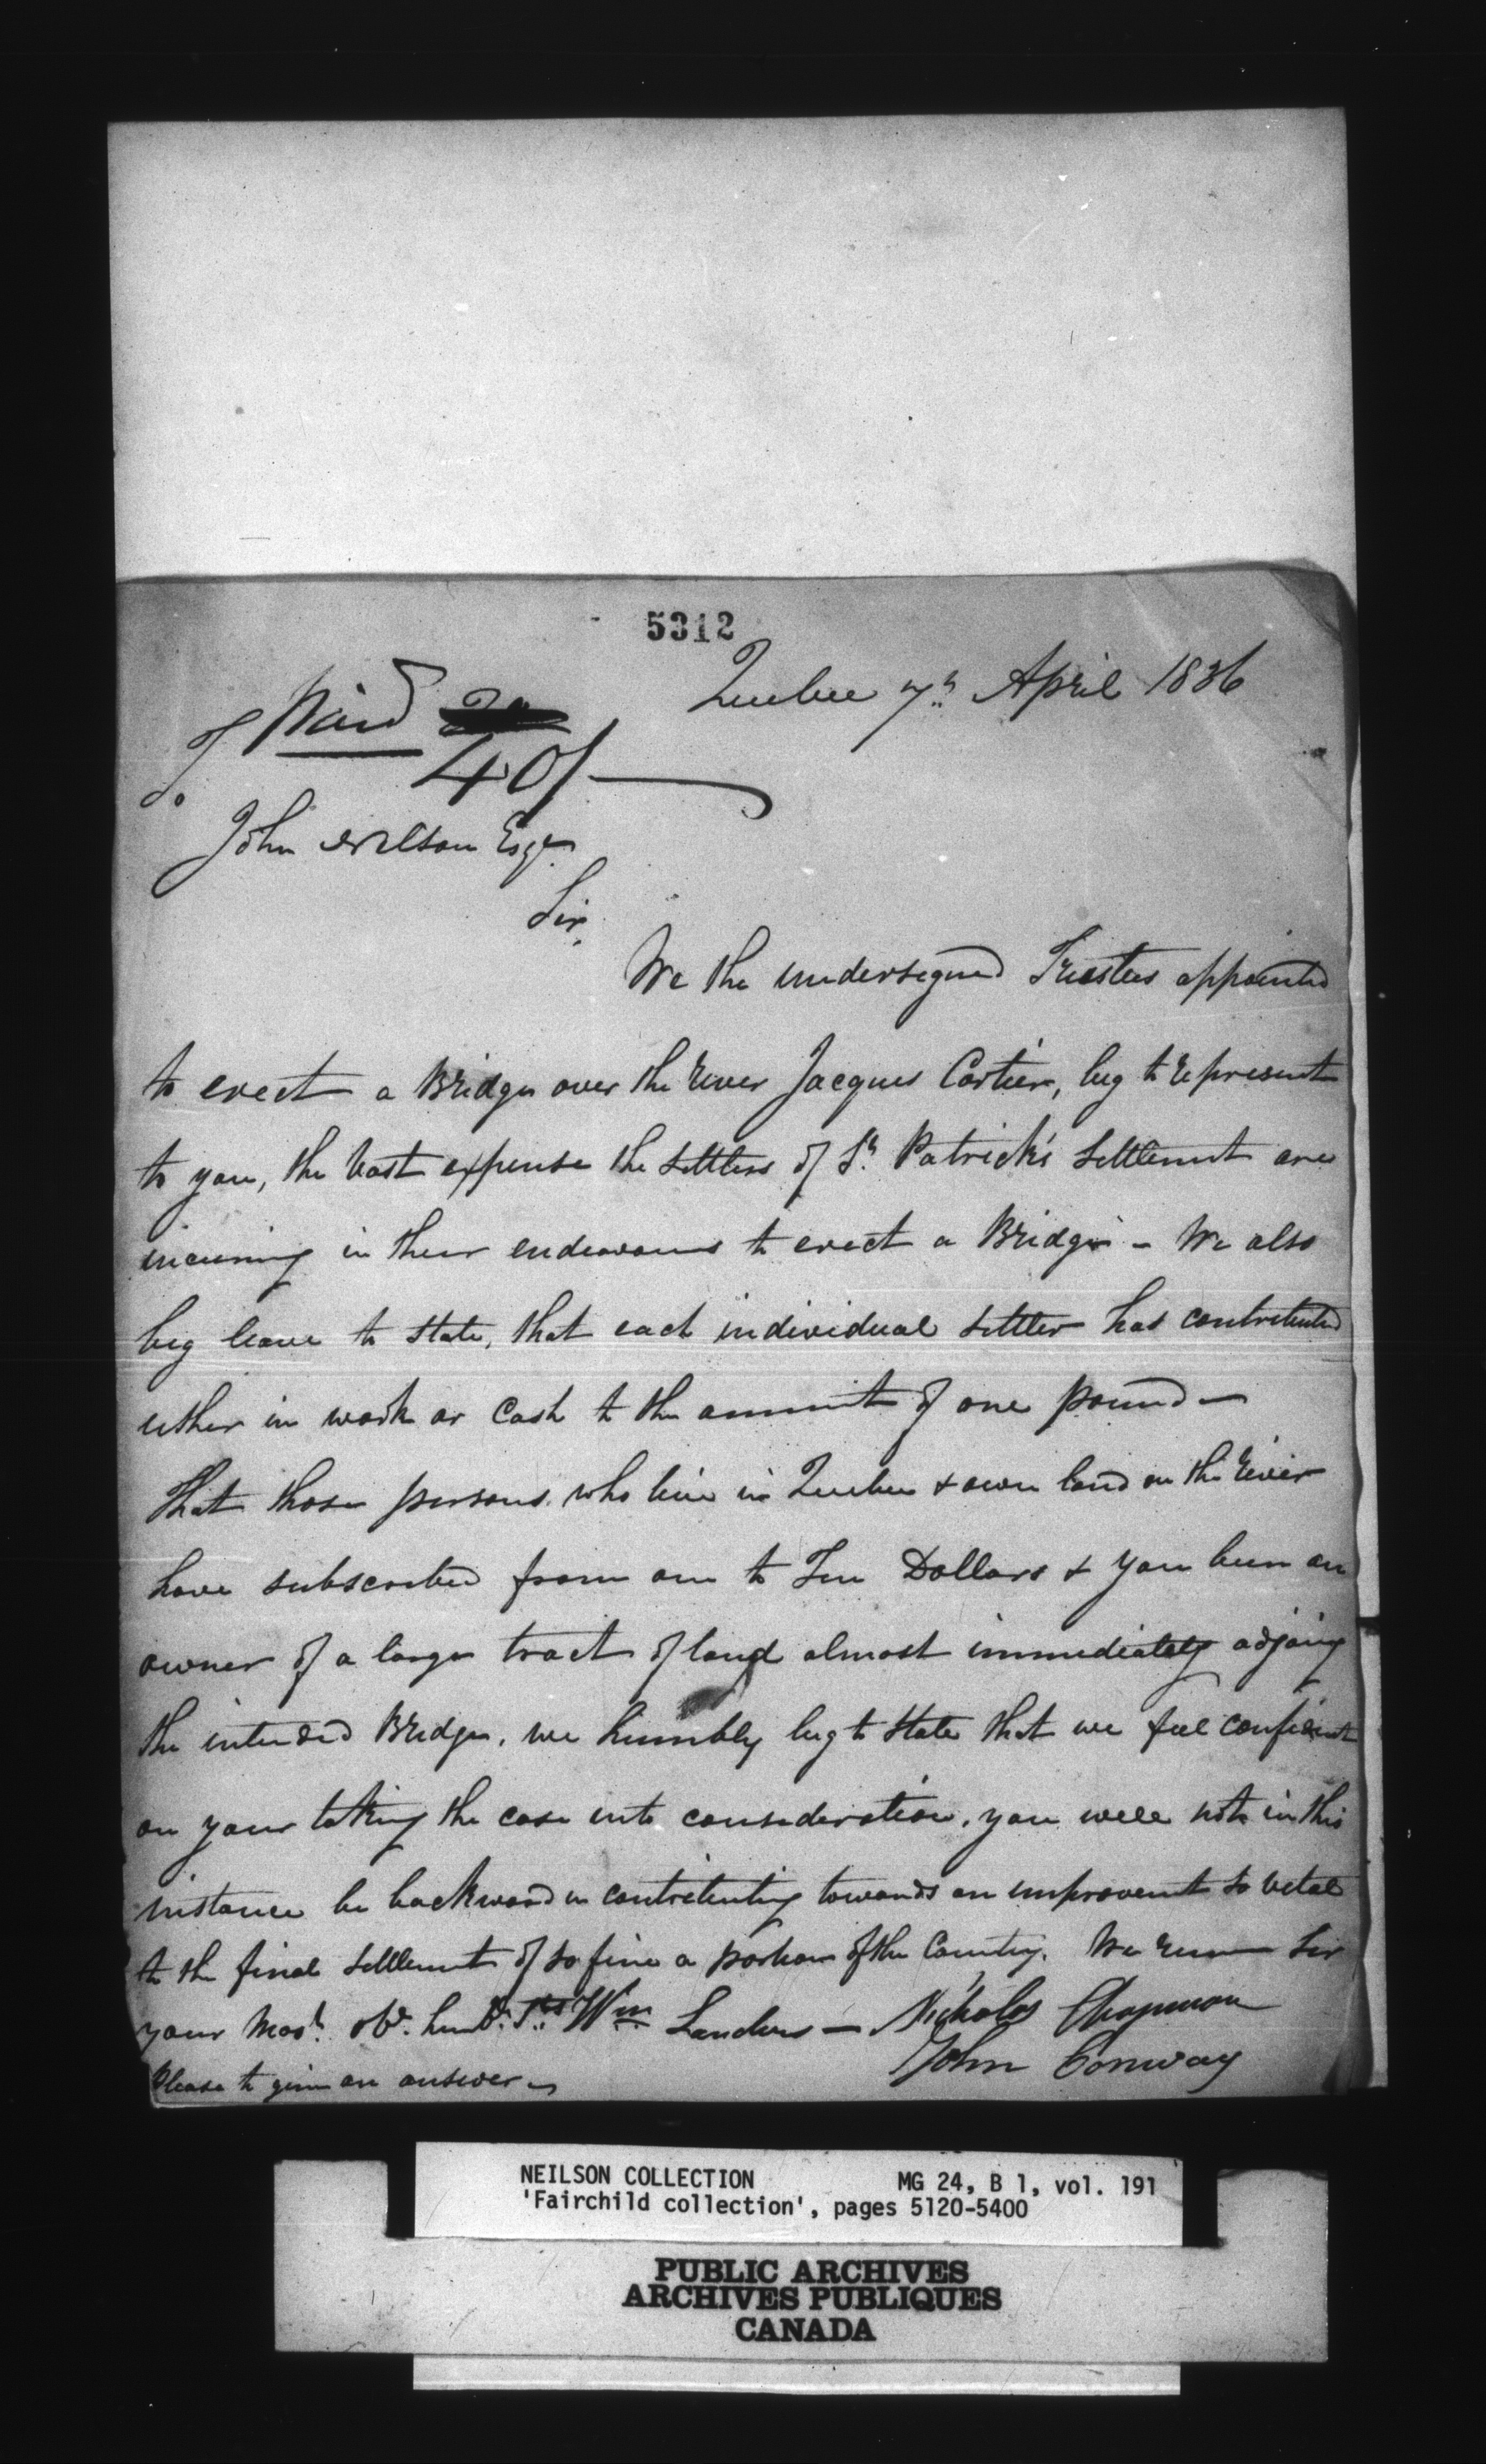 5312
Quebec 7th April 1836
Paid 20
40/
To
John Neilson Esqr
Sir,
We the undersigned Trustees appointed
to erect a Bridge over the River Jacques Cartier, beg to represent
to you, the vast expense the settlers of St. Patrick's Settlement are
incurring in their endeavours to erect a Bridge - We also
beg leave to state, that each individual settler has contributed
either in work or Cash to the amount of one pound -
That those persons who live in Quebec & own land on the River
have subscribed from one to Ten Dollars & you been an
owner of a large tract of land almost immediately adjoing
the intended Bridge, we humbly beg to state that we feel confident
on your taking the case into consideration, you will not in this
instance be backward in contributing towards an improvement so vital
to the final settlement of so fine a portion of the Country. We remain Sir
your Most. obt. humb. Sts. Wm Landers - Nicholas Chapman
John Conway
Please to give an answer -
NEILSON COLLECTION MG 24, B 1, vol. 191
'Fairchild collection', pages 5120-5400
PUBLIC ARCHIVES
ARCHIVES PUBLIQUES
CANADA